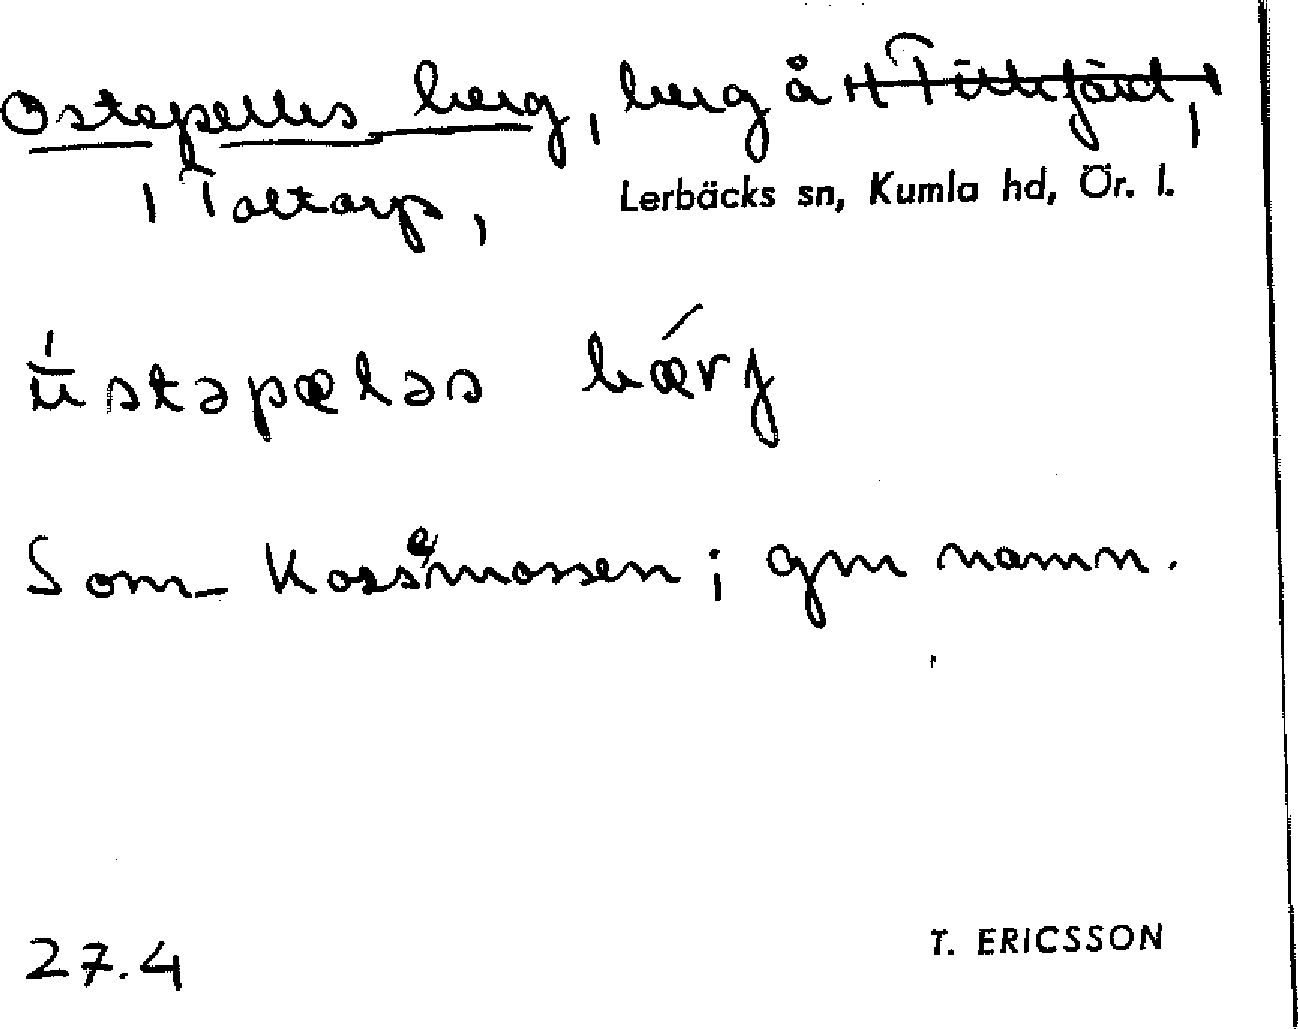 Ostapelles berg, berg å
i Toltorp, Lerbäcks sn, Kumla hd, Ör. l.
ɯ̄́stəpæləs bǽrj
Som Kossamossen; gm namn.
27.4 T. ERICSSON